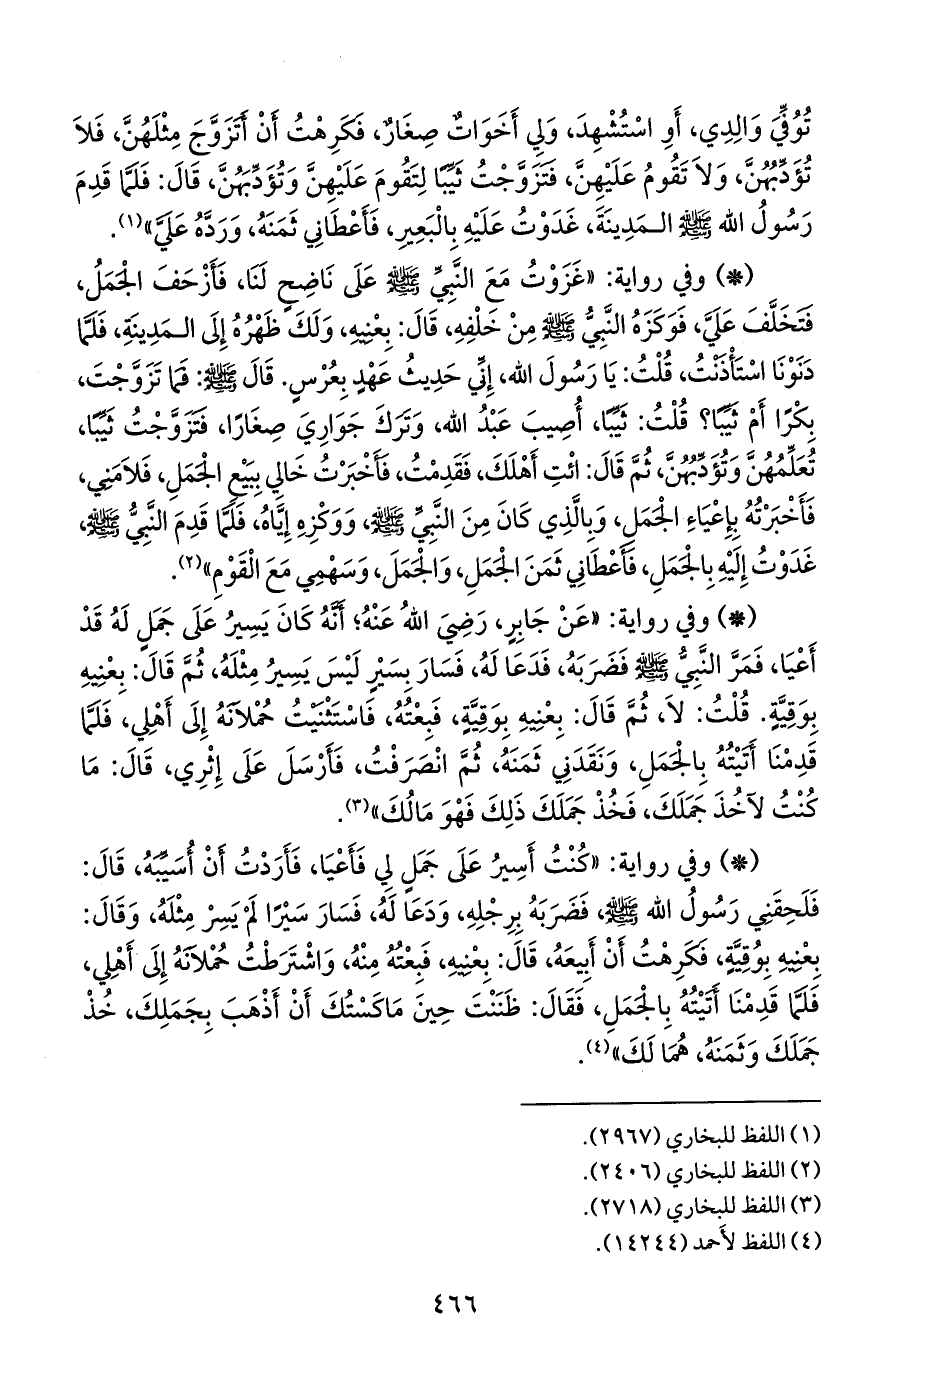 تُوُفِّيَ وَالِدِي، أَوِ اسْتُشْهِدَ، وَلِي أَخَوَاتٌ صِغَارٌ، فَكَرِهْتُ أَنْ أَتَزَوَّجَ مِثْلَهُنَّ، فَلاَ
تُؤَدِّبُهُنَّ، وَلاَ تَقُومُ عَلَيْهِنَّ، فَتَزَوَّجْتُ ثَيِّبًا لِتَقُومَ عَلَيْهِنَّ وَتُؤَدِّبَهُنَّ، قَالَ: فَلَمَّا قَدِمَ
رَسُولُ الله ﷺ الـمَدِينَةَ، غَدَوْتُ عَلَيْهِ بِالْبَعِيرِ، فَأَعْطَانِي ثَمَنَهُ، وَرَدَّهُ عَلَيَّ»(١).
(*) وفي رواية: «غَزَوْتُ مَعَ النَّبِيِّ ﷺ عَلَى نَاضِحٍ لَنَا، فَأَزْحَفَ الْجَمَلُ،
فَتَخَلَّفَ عَلَيَّ، فَوَكَزَهُ النَّبِيُّ ﷺ مِنْ خَلْفِهِ، قَالَ: بِعْنِيهِ، وَلَكَ ظَهْرُهُ إِلَى الـمَدِينَةِ، فَلَمَّا
دَنَوْنَا اسْتَأْذَنْتُ، قُلْتُ: يَا رَسُولَ الله، إِنِّي حَدِيثُ عَهْدٍ بِعُرْسٍ. قَالَ ﷺ: فَمَا تَزَوَّجْتَ،
بِكْرًا أَمْ ثَيِّبًا؟ قُلْتُ: ثَيِّبًا، أُصِيبَ عَبْدُ الله، وَتَرَكَ جَوَارِيَ صِغَارًا، فَتَزَوَّجْتُ ثَيِّبًا،
تُعَلِّمُهُنَّ وَتُؤَدِّبُهُنَّ، ثُمَّ قَالَ: ائْتِ أَهْلَكَ، فَقَدِمْتُ، فَأَخْبَرْتُ خَالِي بِبَيْعِ الْجَمَلِ، فَلاَمَنِي،
فَأَخْبَرْتُهُ بِإِعْيَاءِ الْجَمَلِ، وَبِالَّذِي كَانَ مِنَ النَّبِيِّ ﷺ، وَوَكْزِهِ إِيَّاهُ، فَلَمَّا قَدِمَ النَّبِيُّ ﷺ،
غَدَوْتُ إِلَيْهِ بِالْجَمَلِ، فَأَعْطَانِي ثَمَنَ الْجَمَلِ، وَالْجَمَلَ، وَسَهْمِي مَعَ الْقَوْمِ»(٢).
(*) وفي رواية: «عَنْ جَابِرٍ، رَضِيَ اللهُ عَنْهُ؛ أَنَّهُ كَانَ يَسِيرُ عَلَى جَمَلٍ لَهُ قَدْ
أَعْيَا، فَمَرَّ النَّبِيُّ ﷺ فَضَرَبَهُ، فَدَعَا لَهُ، فَسَارَ بِسَيْرٍ لَيْسَ يَسِيرُ مِثْلَهُ، ثُمَّ قَالَ: بِعْنِيهِ
بِوَقِيَّةٍ. قُلْتُ: لاَ، ثُمَّ قَالَ: بِعْنِيهِ بِوَقِيَّةٍ، فَبِعْتُهُ، فَاسْتَثْنَيْتُ حُمْلاَنَهُ إِلَى أَهْلِي، فَلَمَّا
قَدِمْنَا أَتَيْتُهُ بِالْجَمَلِ، وَنَقَدَنِي ثَمَنَهُ، ثُمَّ انْصَرَفْتُ، فَأَرْسَلَ عَلَى إِثْرِي، قَالَ: مَا
كُنْتُ لآخُذَ جَمَلَكَ، فَخُذْ جَمَلَكَ ذَلِكَ فَهْوَ مَالُكَ»(٣).
(*) وفي رواية: «كُنْتُ أَسِيرُ عَلَى جَمَلٍ لِي فَأَعْيَا، فَأَرَدْتُ أَنْ أُسَيِّبَهُ، قَالَ:
فَلَحِقَنِي رَسُولُ الله ﷺ، فَضَرَبَهُ بِرِجْلِهِ، وَدَعَا لَهُ، فَسَارَ سَيْرًا لَمْ يَسِرْ مِثْلَهُ، وَقَالَ:
بِعْنِيهِ بِوُقِيَّةٍ، فَكَرِهْتُ أَنْ أَبِيعَهُ، قَالَ: بِعْنِيهِ، فَبِعْتُهُ مِنْهُ، وَاشْتَرَطْتُ حُمْلاَنَهُ إِلَى أَهْلِي،
فَلَمَّا قَدِمْنَا أَتَيْتُهُ بِالْجَمَلِ، فَقَالَ: ظَنَنْتَ حِينَ مَاكَسْتُكَ أَنْ أَذْهَبَ بِجَمَلِكَ، خُذْ
جَمَلَكَ وَثَمَنَهُ، هُمَا لَكَ»(٤).
(١) اللفظ للبخاري (٢٩٦٧).
(٢) اللفظ للبخاري (٢٤٠٦).
(٣) اللفظ للبخاري (٢٧١٨).
(٤) اللفظ لأَحمد (١٤٢٤٤).
٤٦٦